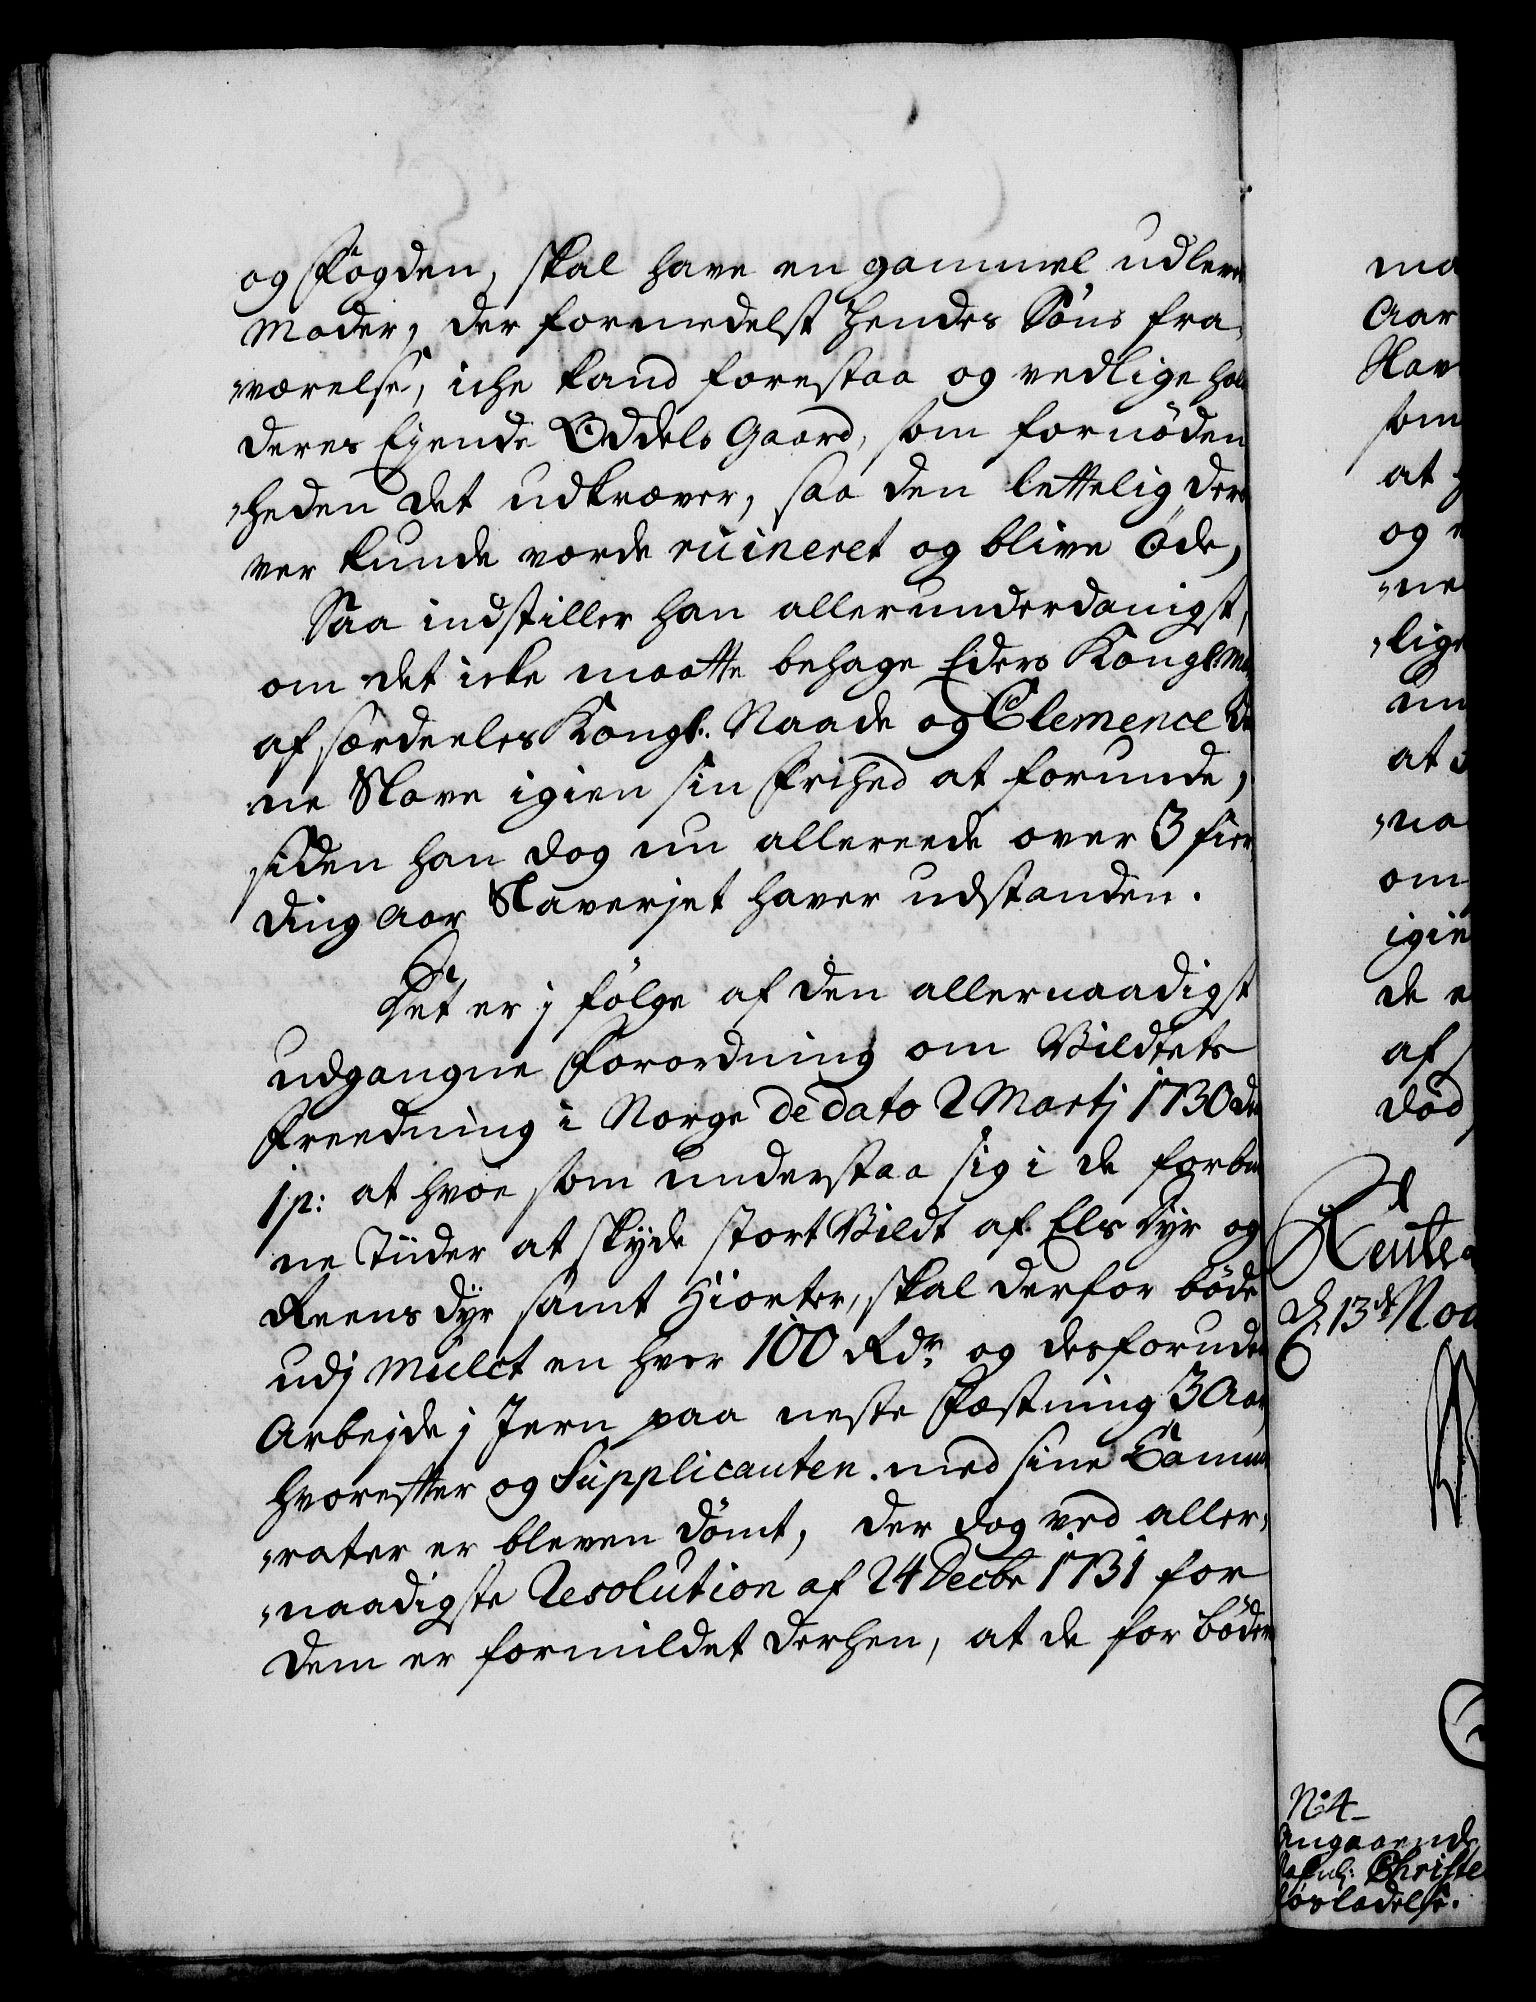 og Fogden, skal have en gammel udlevet
Moder, der formedelst hendes Söns fra„
„værelse, iche kand forestaa og vedlige hol
deres Ejende Oddels Gaard, som fornöden
„heden det udkræver, saa den lettelig der
ver kunde vorde ruineret og blive Öde,
Saa indstiller han allerunderdanigst,
om det icke maatte behage Eders Kongl: May
af særdeeles Kongl. Naade og Clemence den
ne Slave igien sin Frihed at forunde,
siden han dog nu allereede over 3 fier
ding Aar Slaverjet haver udstanden.
Det er j fölge af den allernaadigst
udgangne Forordning om Vildtets
Freedning i Norge de dato 2 Martj 1730 de
1 p: at hvoe som understaa sig i de forbu
ne Tiider at skyde stort Vildt af Els dyr og
Reens dyr samt Hiorter, skal derfor böde
udj Mulct en hver 100 Rdr. og desforuden
Arbejde j Jern paa neste Fæstning 3 Aar
hvorefter og Supplicanten med sine Cam
„rater er bleven dömt, der dog ved aller„
„naadigste Resolution af 24 Decbr 1731 for
dem er formildet derhen, at de for böder
ma
Aar
Slav
som
at
og
„ne
„lig
un
at
„na
om
igie
de
af
död
Rente
d. 13de Nov
No: 4
Angaaende
Christe
lösladelse.